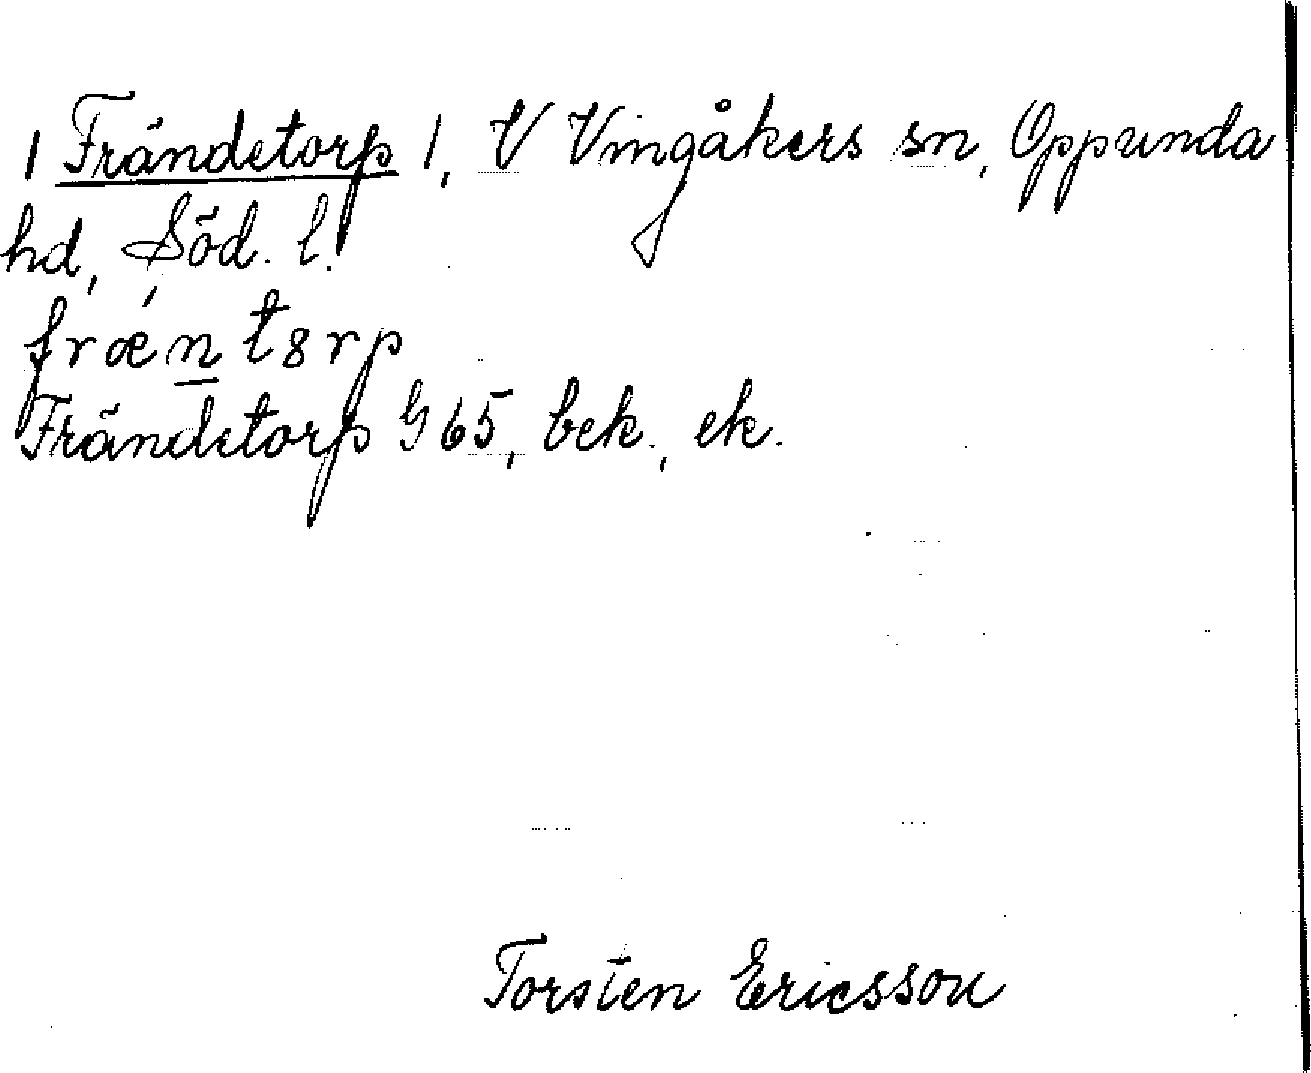 1 Frändetorp 1, V Vingåkers sn, Oppunda
hd, Söd. l.
frǽn t8rp
Frändetorp G 65, bek., ek.
Torsten Ericsson